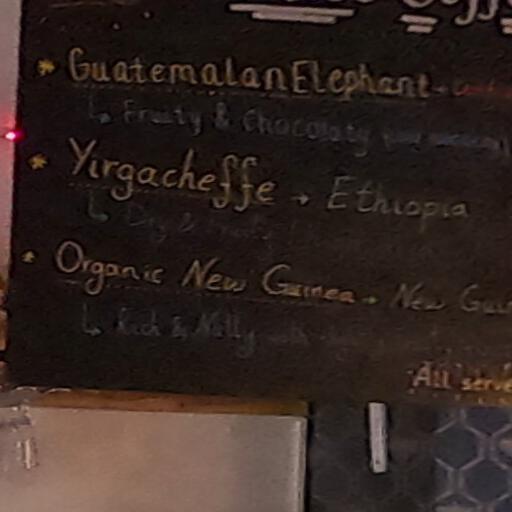 * Guatemalan Elephant
↳ Fruity & Chocolaty
* Yirgacheffe → Ethiopia
↳ Dry & Fruity
* Organic New Guinea → New Gui
↳ Rich & Nutty with
All serve